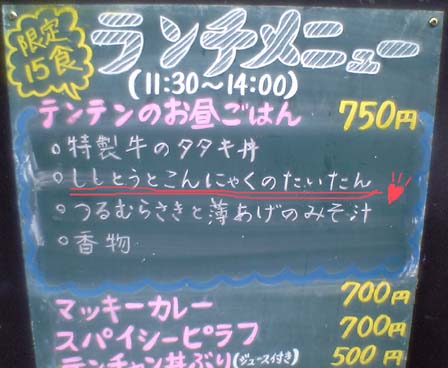 限定
15食
ランチメニュー
(11:30〜14:00)
テンテンのお昼ごはん 750円
。特製牛のタタキ丼
。ししとうとこんにゃくのたいたん
。つるむらさきと薄あげのみそ汁
。香物
マッキーカレー 700円
スパイシーピラフ 700円
テンチャン丼ぶり(ジュース付き) 500円